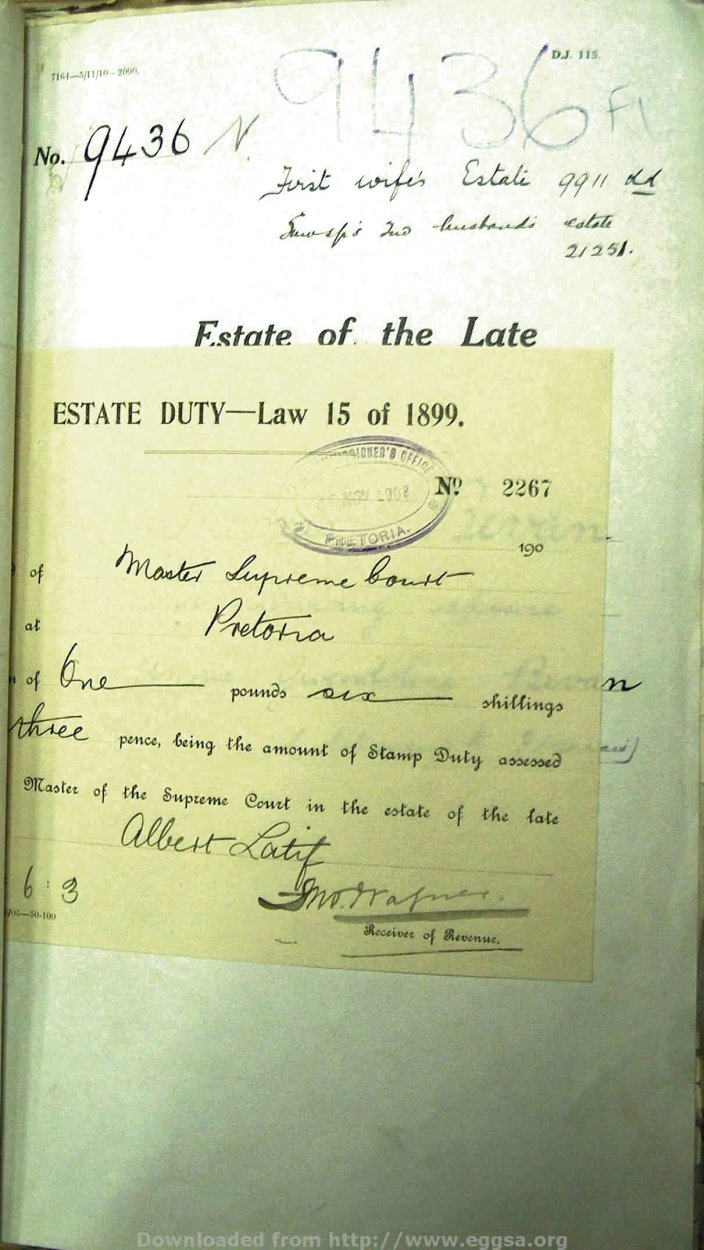 7164—5/11/10—2000.
D.J. 115.
9436 F1
No. 9436 N
First wife's Estate 9911
husband's estate
21251.
Estate of the Late
ESTATE DUTY—Law 15 of 1899.
OFFICE
PRETORIA
No 2267
190
of Master Supreme Court
at Pretoria
of One pounds six shillings
three pence, being the amount of Stamp Duty assessed
Master of the Supreme Court in the estate of the late
Albert Latif
6 : 3
Receiver of Revenue.
Downloaded from http://www.eggsa.org